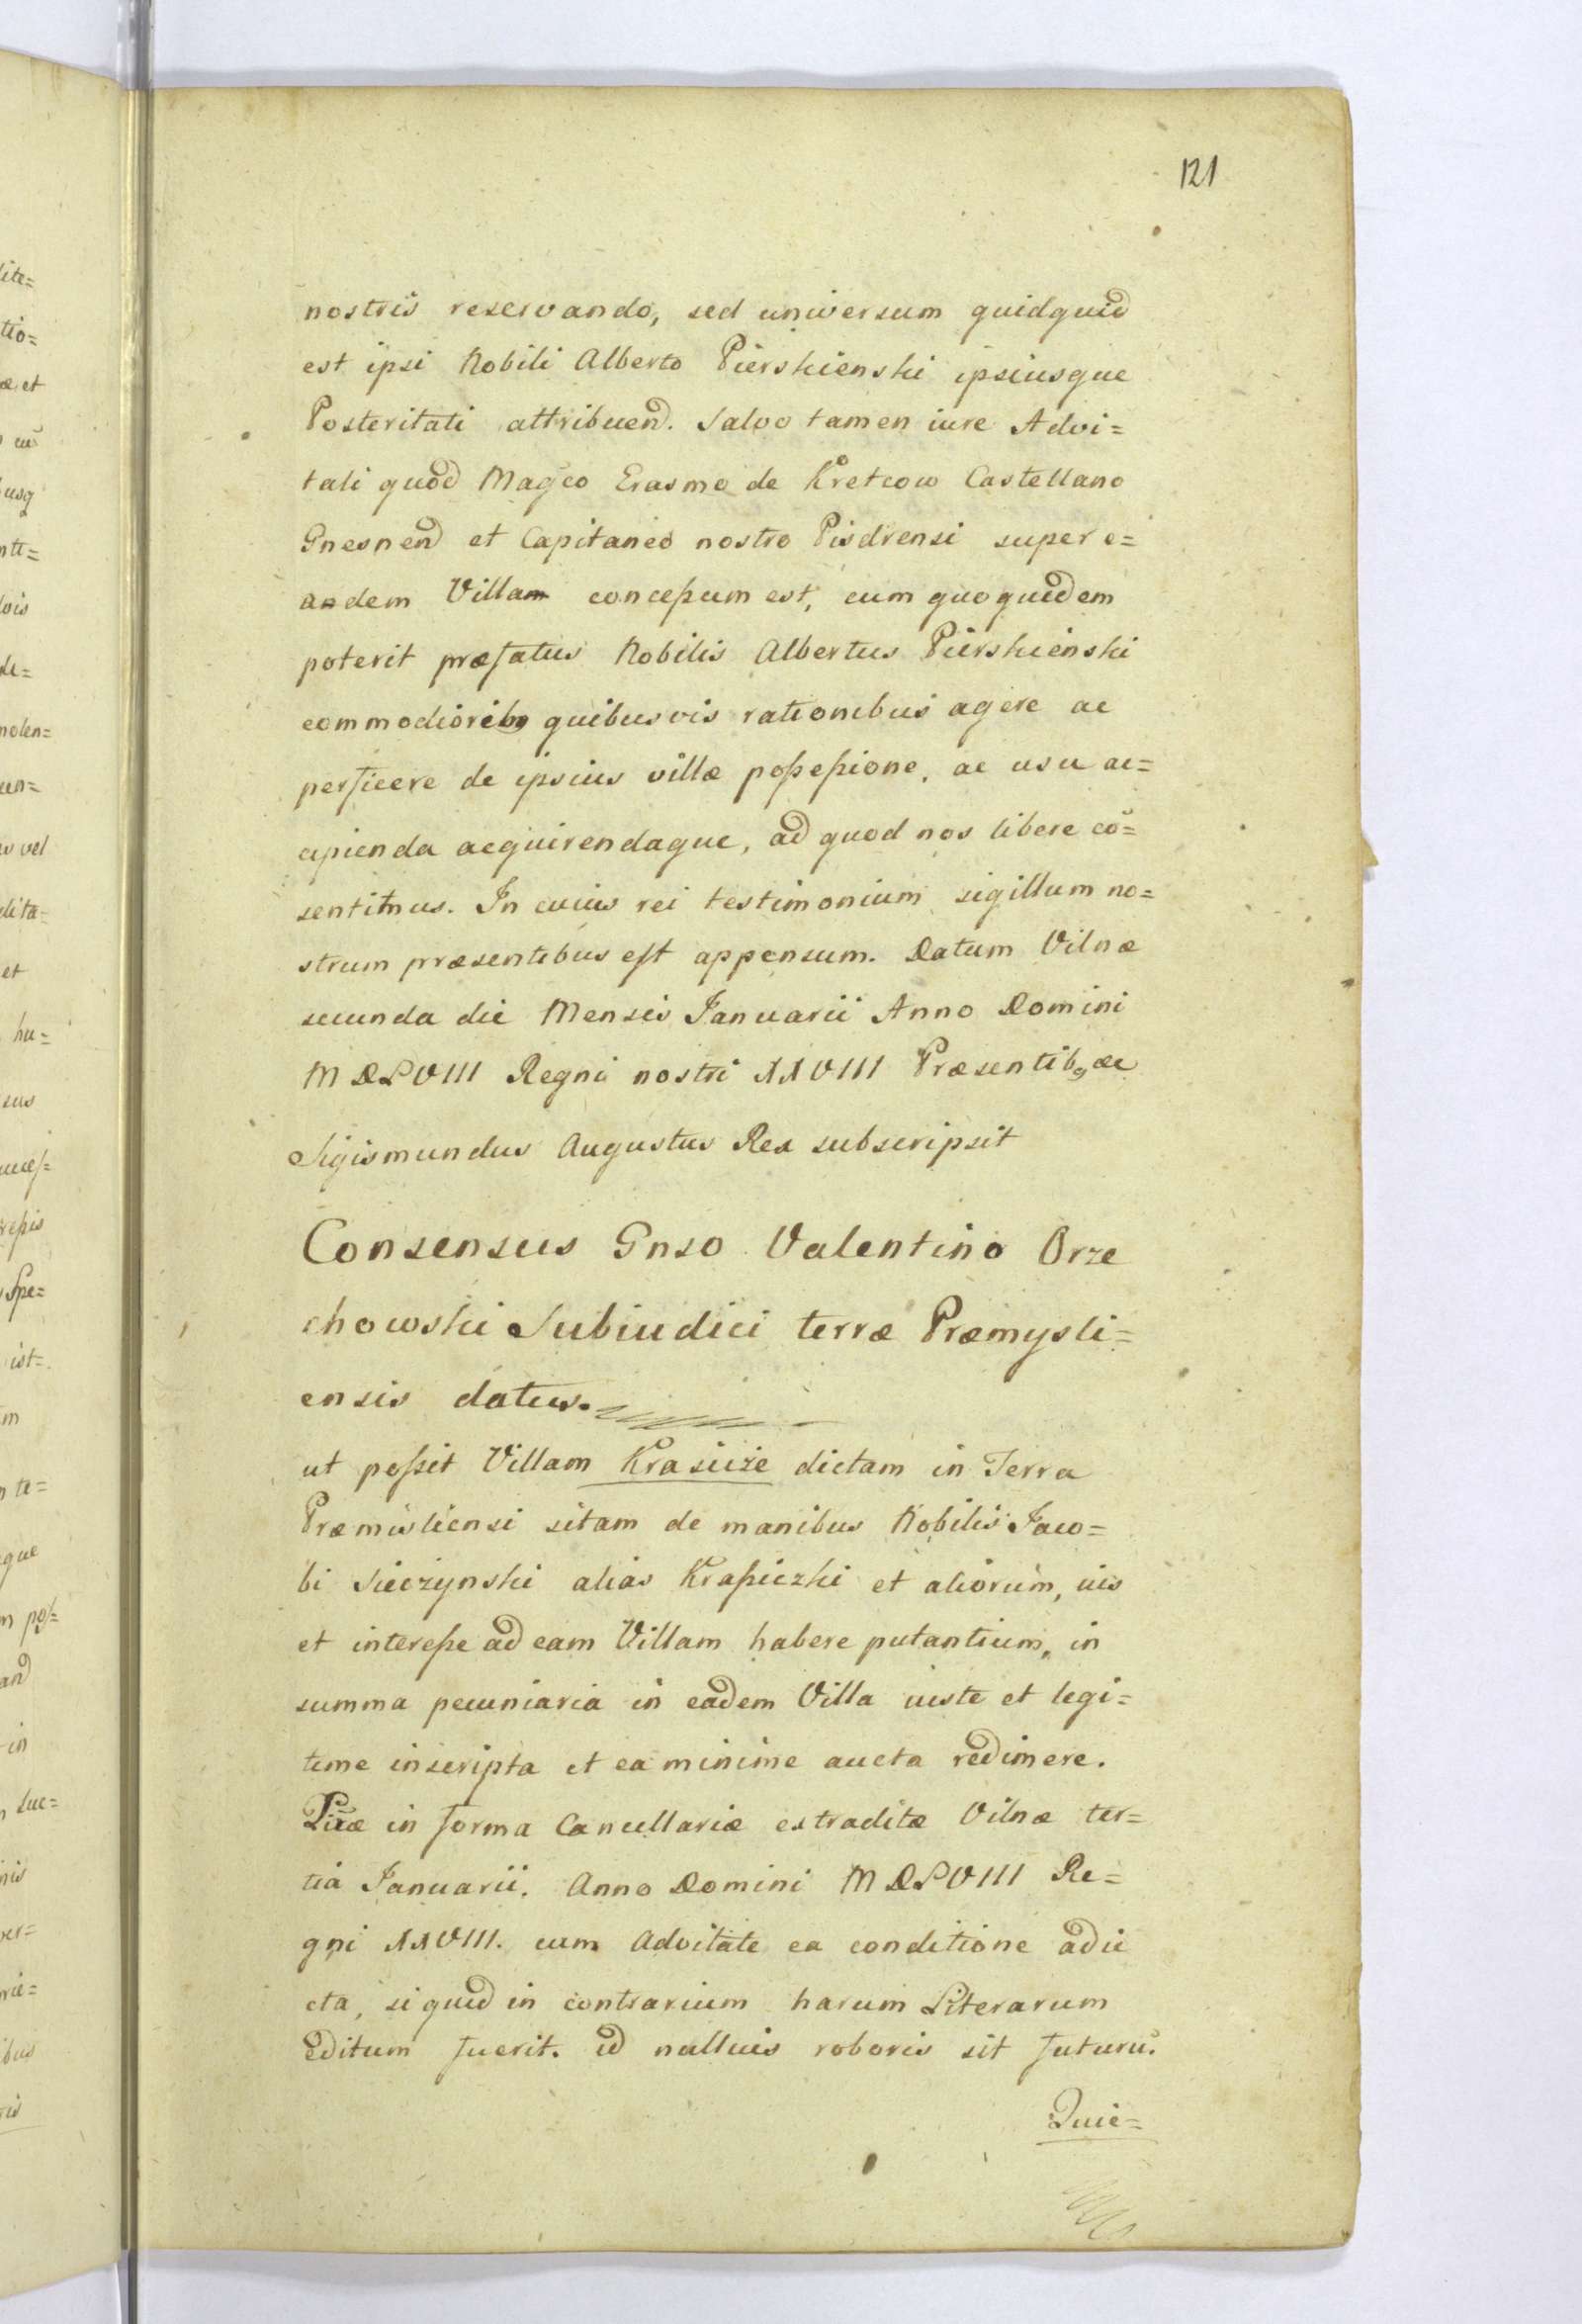 121
nostris reservando, sed universum quidquid
est ipsi Nobili Alberto Pierskienski ipsiusque
Posteritati attribuend. Salvo tamen iure Advi=
tali quod Magco Erasmo de Kretcow Castellano
Gnesnen et Capitaneo nostro Pisdrensi super e=
andem Villam concessum est, cum quoquidem
poterit præfatus Nobilis Albertus Pierskienski
commodiorib9 quibusvis rationibus agere ac
perficere de ipsius villæ possessione, ac usu ac=
cipienda acquirendaque, ad quod nos libere cō=
sentimus. In cuius rei testimonium sigillum no=
strum præsentibus est appensum. Datum Vilnæ
secunda die Mensis Januarii Anno Domini
MDLVIII Regni nostri XXVIII Præsentib9 &c
Sigismundus Augustus Rex subscripsit
Consensus Gnso Valentino Orze
chowski Subiudici terræ Præmysli=
ensis datus.
ut possit Villam Krasicze dictam in Terra
Præmisliensi sitam de manibus Nobilis Jaco=
bi Sieczynski alias Krassiczki et aliorum, ius
et interesse ad eam Villam habere putantium, in
summa pecuniaria in eadem Villa iuste et legi=
time inscripta et ea minime aucta redimere.
Lræ in forma Cancellariæ extraditæ Vilnæ ter=
tia Januarii. Anno Domini MDLVIII Re=
gni XXVIII. cum Advitate ea conditione adie
cta, si quid in contrarium harum Literarum
editum fuerit. id nullius roboris sit futurū.
Quie=